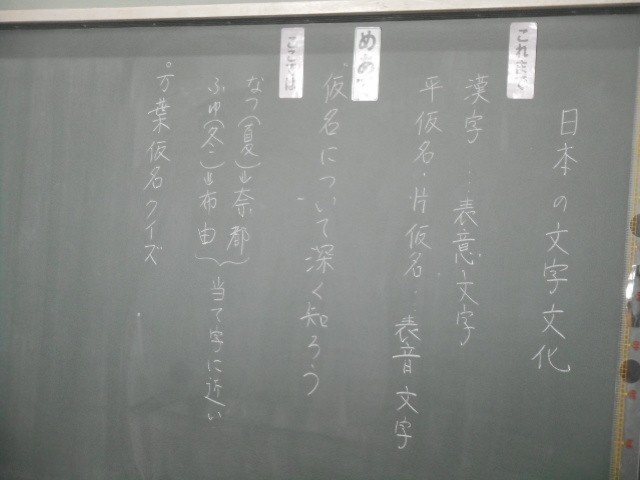 日本の文字文化
これまで
漢字…表意文字
平仮名・片仮名…表音文字
めあて
仮名について深く知ろう
ここでは
なつ(夏)→奈都
ふゆ(冬)→布由
当て字に近い
○万葉仮名クイズ